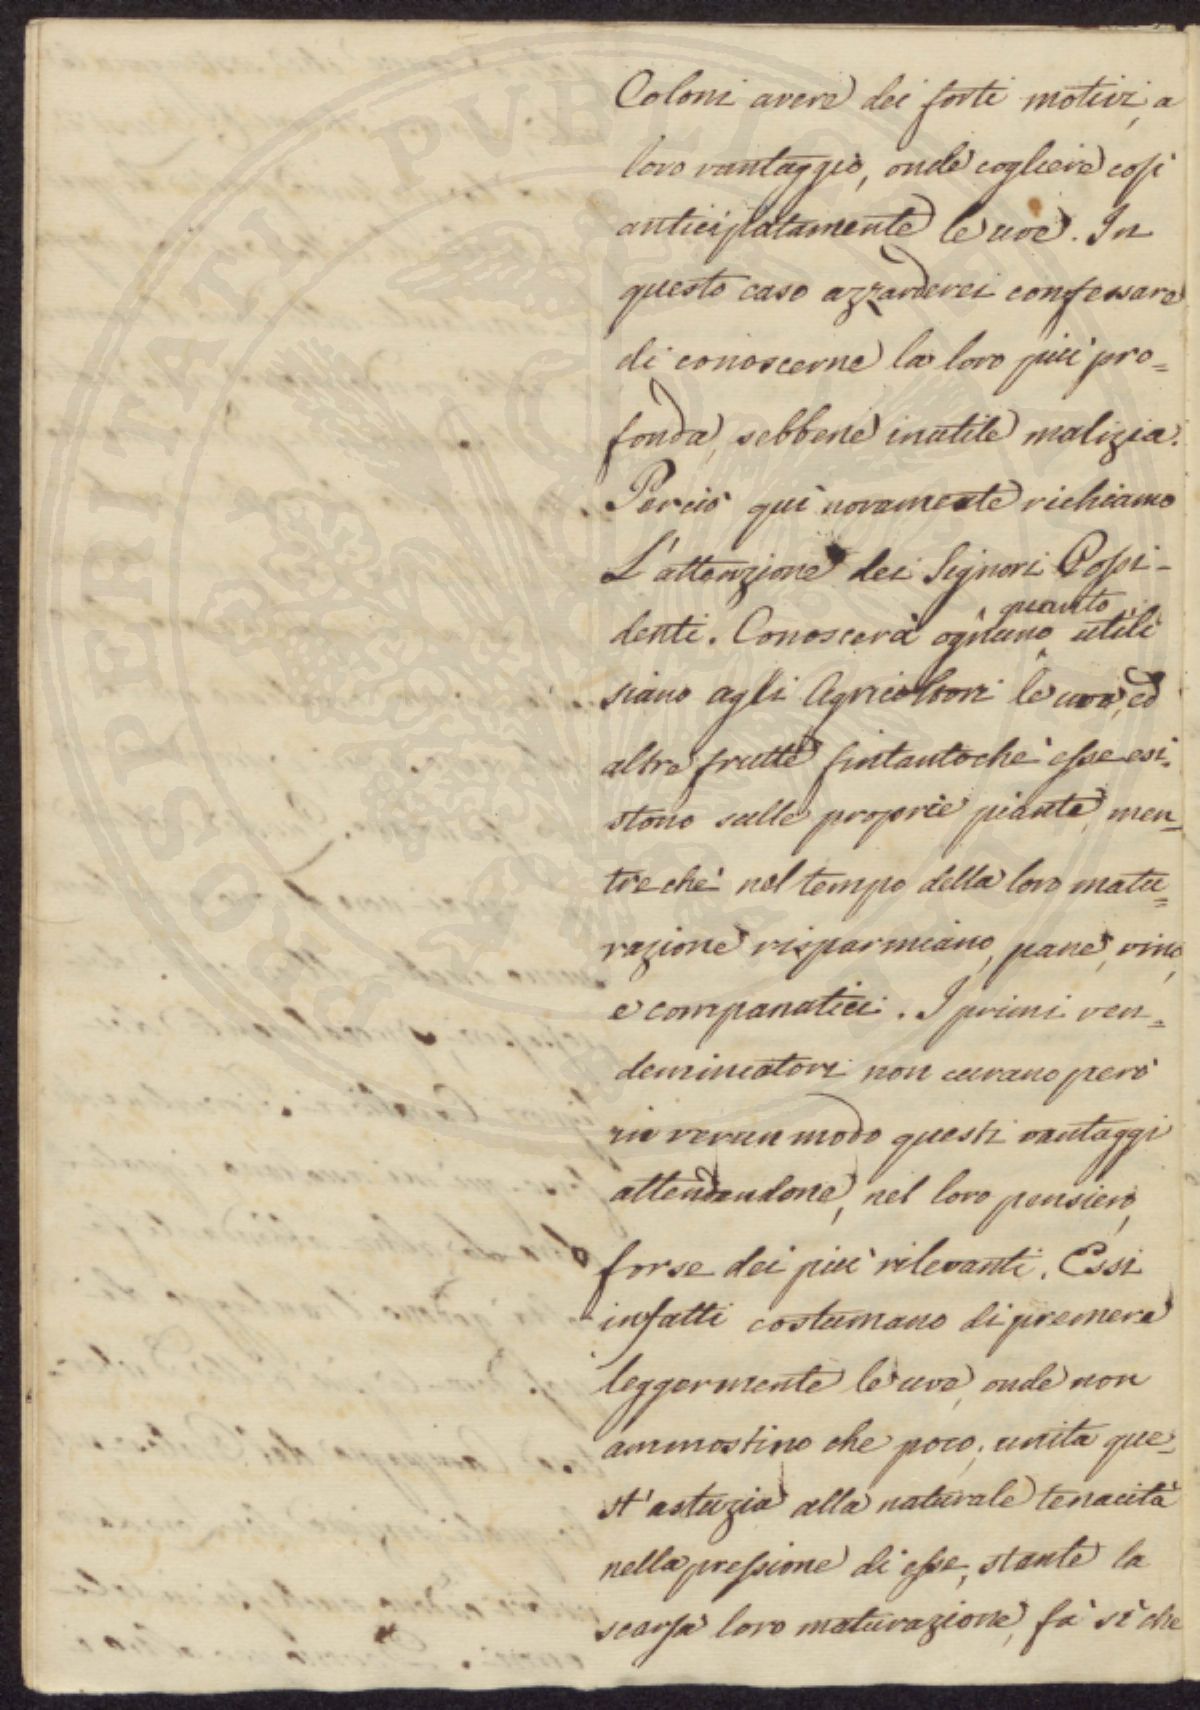 Coloni avere dei forti motivi, a
loro vantaggio, onde cogliere così
anticipatamente le uve. In
questo caso azzarderei confessare
di conoscerne la loro più pro=
fonda, sebbene inutile malizia.
Perciò quì novamente richiamo
L'attenzione dei Signori Possi-
denti. Conoscerà ognuno quanto utili
siano agli Agricoltori le uve, ed
altre frutte fintantochè esse esi=
stono sulle proprie piante, men=
tre chè nel tempo della loro matu=
razione risparmiano, pane, vino,
e companatici. I primi ven=
demmiatori non curano però
in verun modo questi vantaggi
attendendone, nel loro pensiero,
forse dei più rilevanti. Essi
infatti costumano di premere
leggermente le uve, onde non
ammostino che poco; unita que=
st'astuzia alla naturale tenacità
nella pressione di esse, stante la
scarsa loro maturazione, fà sì che
PROSPERITATI PUBLICAE